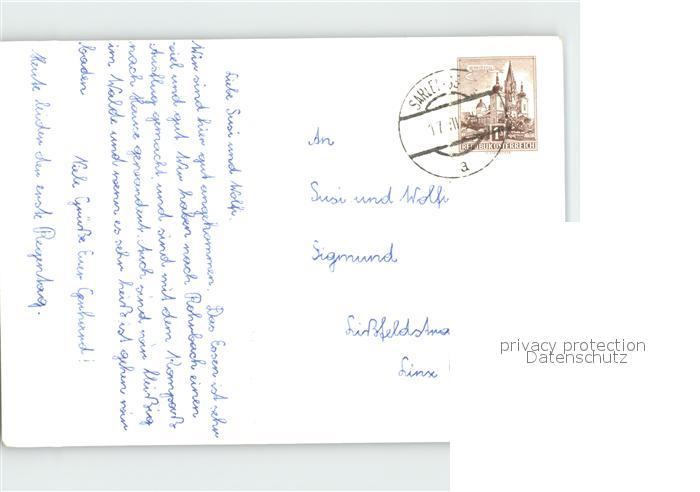 Liebe Susi und Wolfi.
Wir sind hier gut angekommen. Das Essen ist sehr
viel und gut. Wir haben nach Rohrbach einen
Ausflug gemacht und sind mit dem Kompaß
nach Hause gewandert. Auch sind wir fleißig
im Walde und wenn es sehr heiß ist gehen wir
baden
Viele Grüße Euer Gerhard!
Heute leider der erste Regentag.
An
Susi und Wolfi
Sigmund
Lißfeldstra
Linz
REPUBLIK ÖSTERREICH
SARLEI
17. III
a
privacy protection
Datenschutz